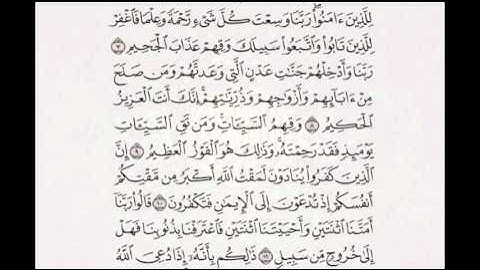 لِلَّذِينَ ءَامَنُوا۟ رَبَّنَا وَسِعْتَ كُلَّ شَىْءٍ رَّحْمَةً وَعِلْمًا فَٱغْفِرْ
لِلَّذِينَ تَابُوا۟ وَٱتَّبَعُوا۟ سَبِيلَكَ وَقِهِمْ عَذَابَ ٱلْجَحِيمِ ٧
رَبَّنَا وَأَدْخِلْهُمْ جَنَّٰتِ عَدْنٍ ٱلَّتِى وَعَدتَّهُمْ وَمَن صَلَحَ
مِنْ ءَابَآئِهِمْ وَأَزْوَٰجِهِمْ وَذُرِّيَّٰتِهِمْ ۚ إِنَّكَ أَنتَ ٱلْعَزِيزُ
ٱلْحَكِيمُ ٨ وَقِهِمُ ٱلسَّيِّـَٔاتِ ۚ وَمَن تَقِ ٱلسَّيِّـَٔاتِ
يَوْمَئِذٍ فَقَدْ رَحِمْتَهُۥ ۚ وَذَٰلِكَ هُوَ ٱلْفَوْزُ ٱلْعَظِيمُ ٩ إِنَّ
ٱلَّذِينَ كَفَرُوا۟ يُنَادَوْنَ لَمَقْتُ ٱللَّهِ أَكْبَرُ مِن مَّقْتِكُمْ
أَنفُسَكُمْ إِذْ تُدْعَوْنَ إِلَى ٱلْإِيمَٰنِ فَتَكْفُرُونَ ١٠ قَالُوا۟ رَبَّنَآ
أَمَتَّنَا ٱثْنَتَيْنِ وَأَحْيَيْتَنَا ٱثْنَتَيْنِ فَٱعْتَرَفْنَا بِذُنُوبِنَا فَهَلْ
إِلَىٰ خُرُوجٍ مِّن سَبِيلٍ ١١ ذَٰلِكُم بِأَنَّهُۥٓ إِذَا دُعِىَ ٱللَّهُ